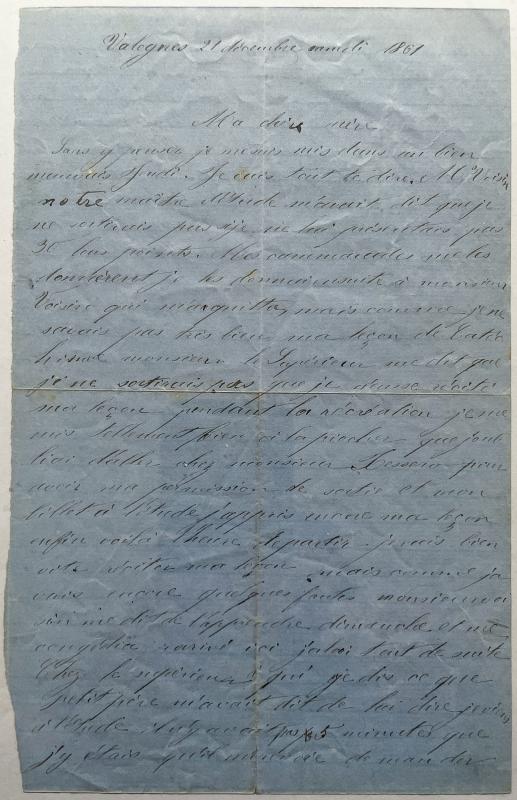 Valognes 21 décembre samedi 1861
Ma chère mère
Sans y penser je me suis mis dans un bien
mauvais Jeudi. Je vais tout te dire. Mr Voisin
notre maître d'étude m'avait dit que je
ne sortirais pas si je ne lui présentais pas
30 bons points. Mes camarades me les
donnèrent je les donnai ensuite à monsieur
Voisin qui m'acquitta, mais comme je ne
savais pas très bien ma leçon de Caté
hisme monsieur le Supérieur me dit que
je ne sortirais pas que je n'eusse récité
ma leçon pendant la récréation je me
mis tellement bien à la piocher que j'oub
liai d'aller chez monsieur pour
avoir ma permission de sortir et mon
billet à l'étude j'appris encore ma leçon
enfin voilà l'heure de partir j'avais bien
vite réciter ma leçon mais comme j'a
vais encore quelques fautes monsieur voi
sin me dit de l'apprendre dimanche et me
congédia rarivé ici j'alai tout de suite
chez le supérieur à qui je dis ce que
petit père m'avait dit de lui dire je vins
à l'étude il n'y avait pas 5 minutes que
j'y étais qu'il m'envoie demander